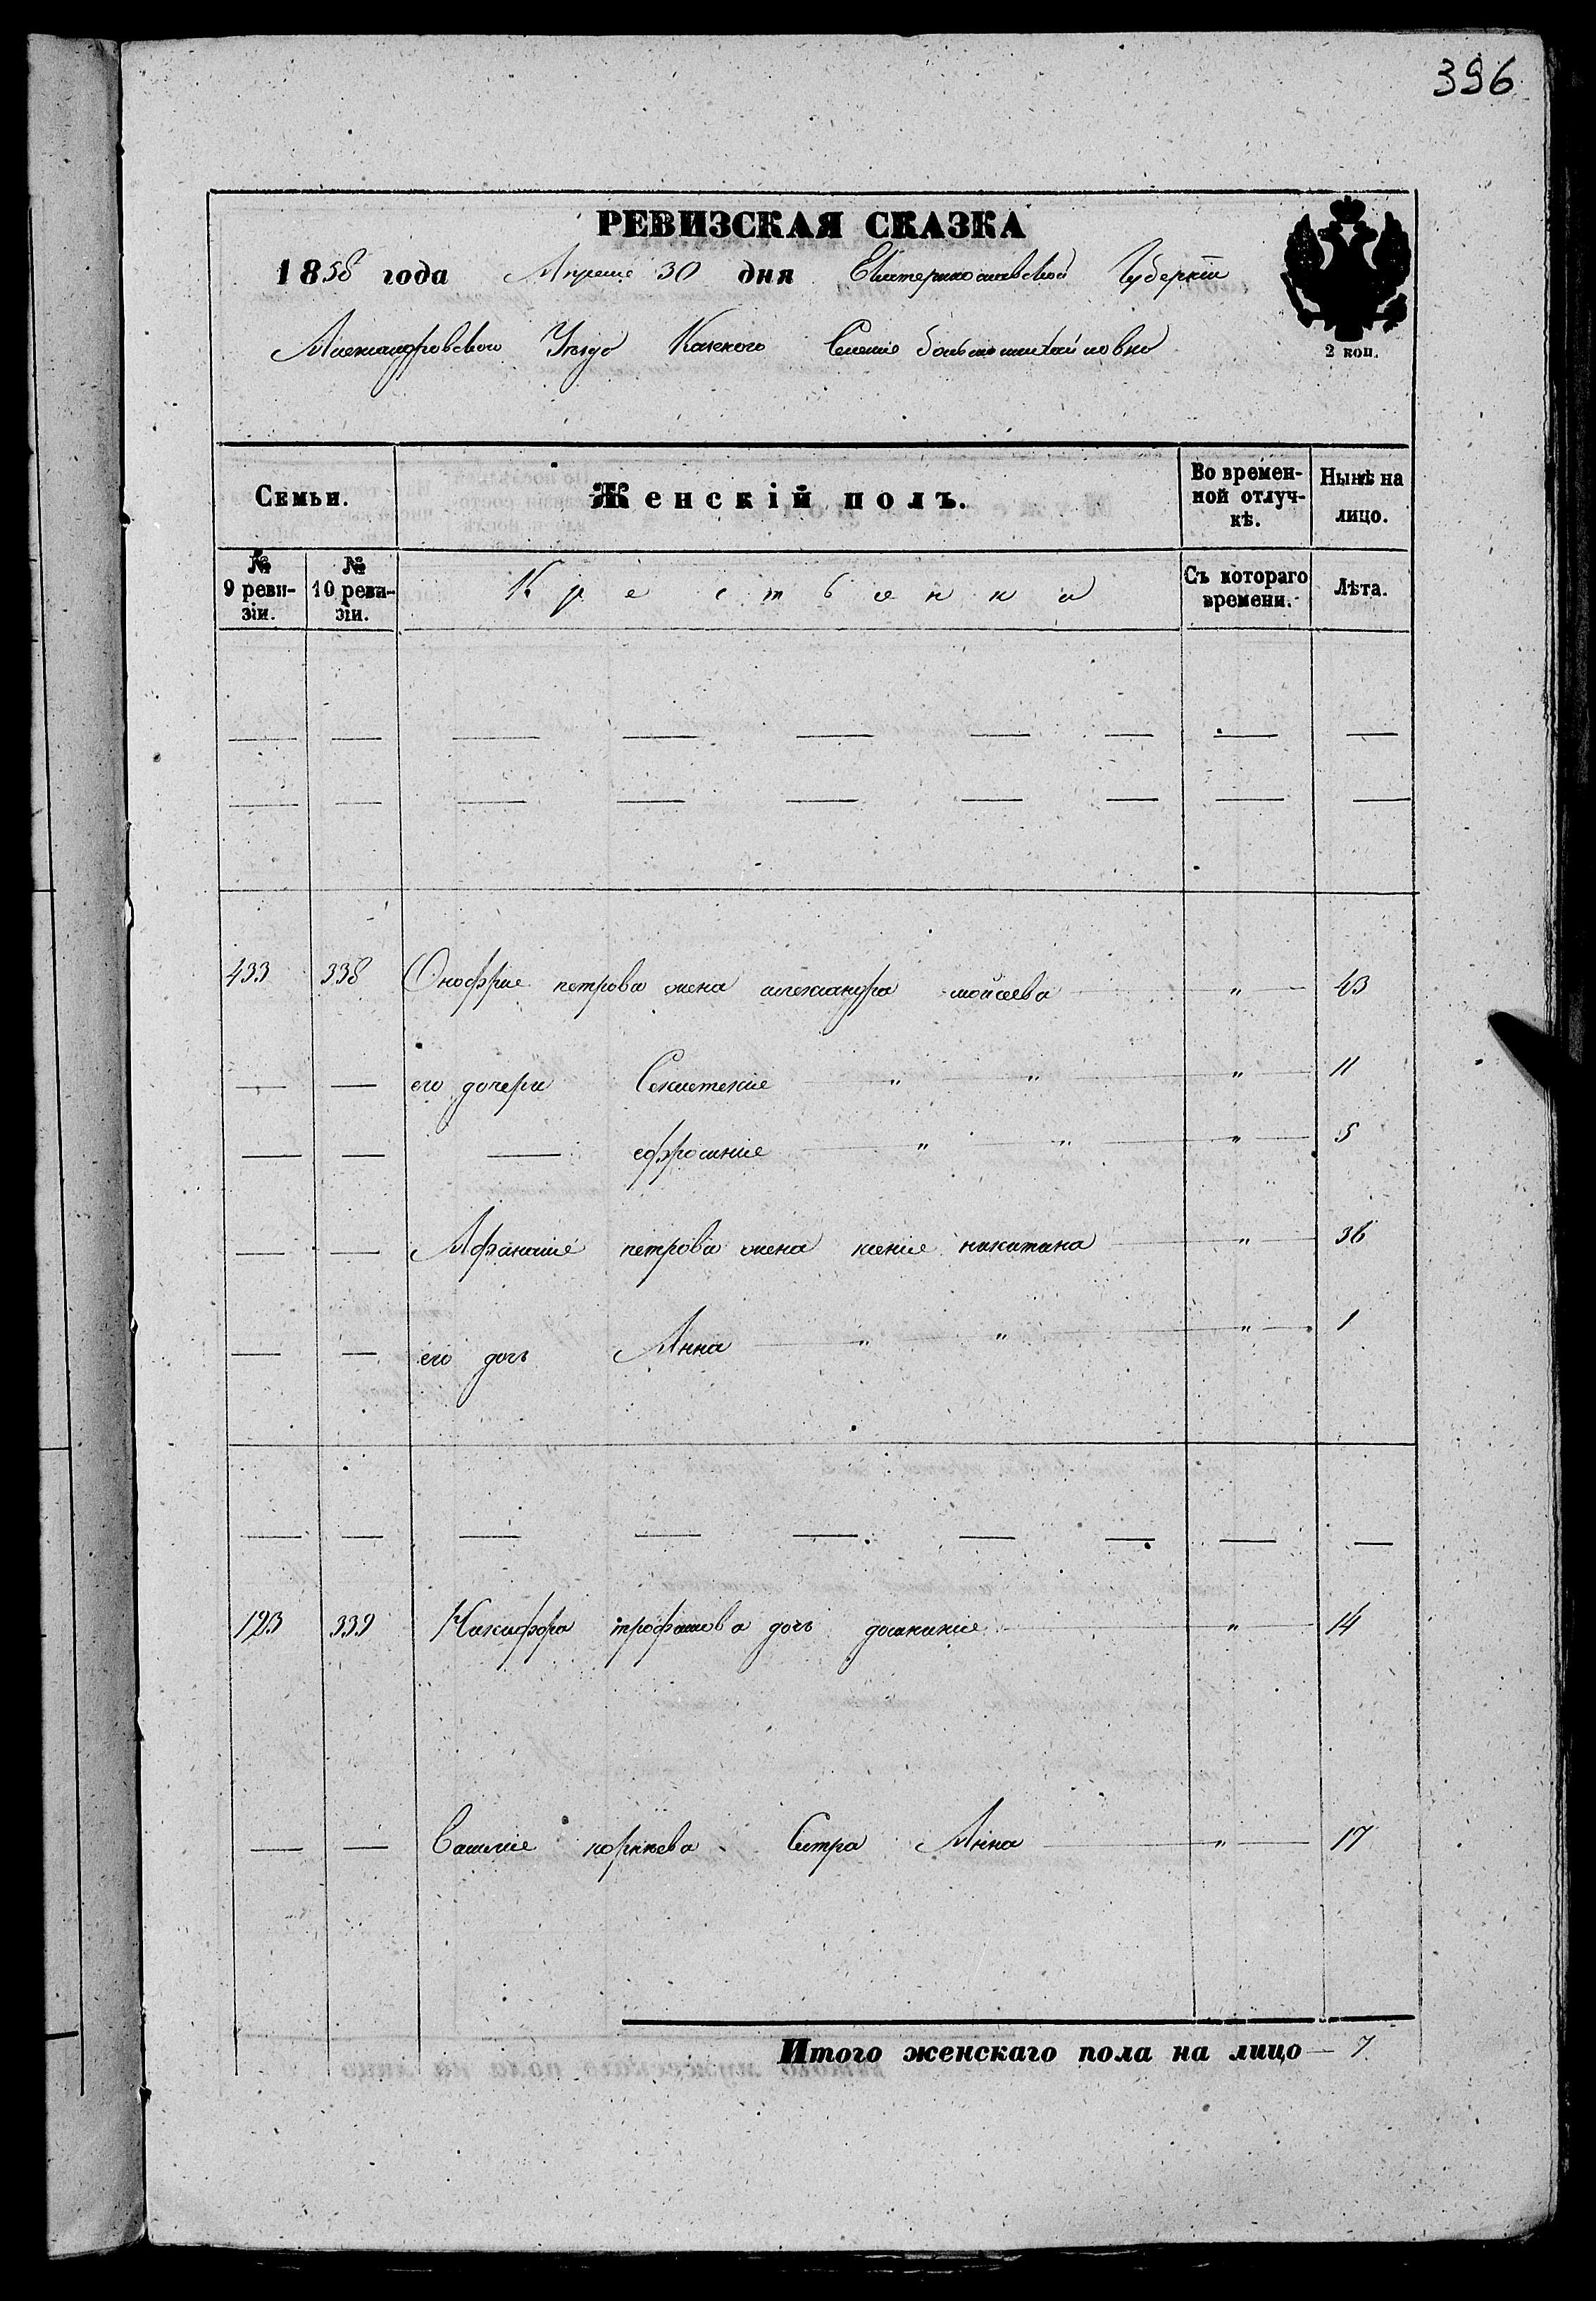 396
РЕВИЗСКАЯ СКАЗКА
1858 года Апреля 30 дня Екатеринославской Губернiи
Александровского Уезда Казенного Селения большемихайловки
2 коп.
Семьи. Женскiй полъ. Во временной отлучкѣ. Нынѣ на лицо.
№ 9 ревизiи. № 10 ревизiи. Крестьянки Съ котораго времени. Лѣта.
433 338 Онофрия петрова жена александра мойсеева " 43
его дочери " " " 11
ефросиния " " " 5
Афанасия петрова жена ксения никитина " 36
его дочь Анна " " " 1
193 339 Никифора трофимова дочь домникия " 14
Василия корнѣева Сестра Анна " 17
Итого женскаго пола на лицо 7